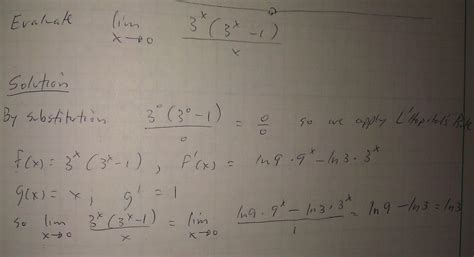 Evaluate lim x→0 3^x(3^x-1)/x
Solution
By substitution 3^0(3^0-1)/0 = 0/0 so we apply L'Hopital's Rule
f(x) = 3^x(3^x-1), F'(x) = ln9·9^x - ln3·3^x
g(x) = x, g' = 1
so lim x→0 3^x(3^x-1)/x = lim x→0 ln9·9^x - ln3·3^x/1 = ln9 - ln3 = ln3